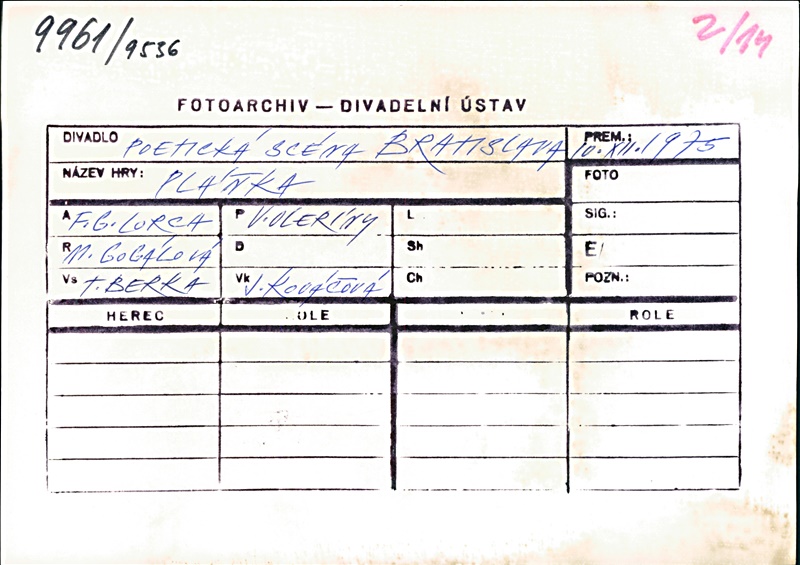 9961/9536
2/14
FOTOARCHIV — DIVADELNÍ ÚSTAV
DIVADLO POETICKÁ SCÉNA BRATISLAVA PREM.: 10.XII.1975
NÁZEV HRY: PLÁŇKA FOTO
A F.G.LORCA P V.OLERÍNY L SIG.:
R M.GOGÁLOVÁ D Sh E/
Vs T.BERKA Vk J.KOVÁČOVÁ Ch POZN.:
HEREC OLE ROLE